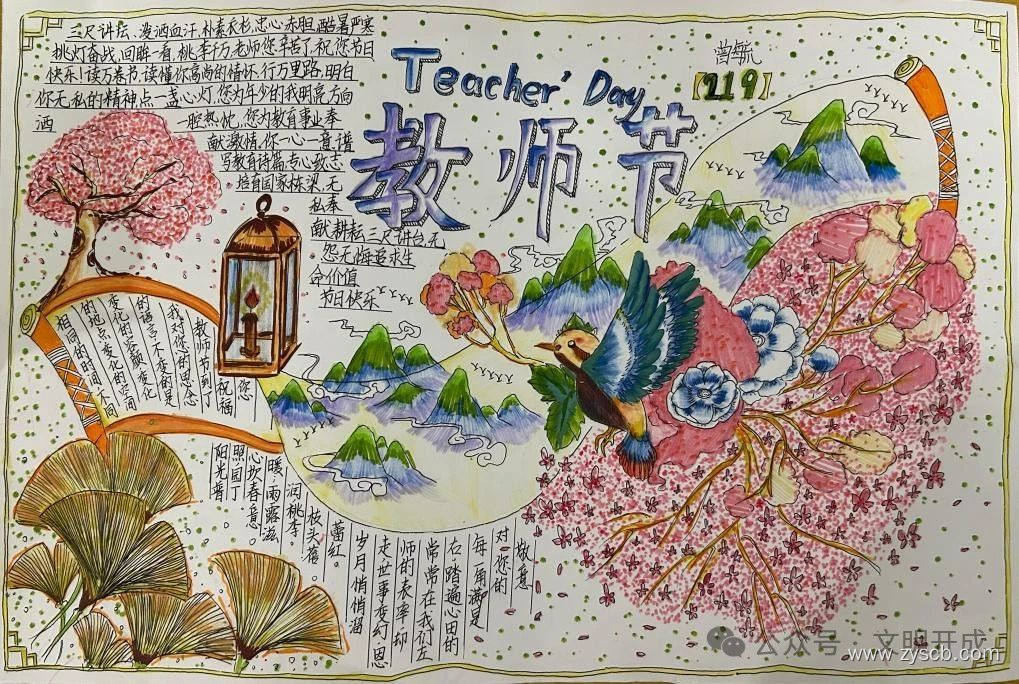 Teacher' Day
【219】
教师节
三尺讲坛、没洒血汗,朴素衣衫,忠心赤胆,酷暑严寒
挑灯奋战,回眸一看,桃李千万,老师您辛苦了,祝您节日
快乐!读万卷节,读懂你高尚的情怀,行万里路,明白
你无私的精神,点一盏心灯,您为年少的我明亮方向
洒 一腔热忱,您为教育事业奉
献激情,你一心一意,谱
写教育诗篇,专心致志
培育国家栋梁,无
私奉
献耕耘三尺讲台,无
怨无悔追求生
命价值
节日快乐
相同的时间不同
的地点变化的空间
变化的容颜变化
的语言不变的是
我对您的思念
教师节到了
祝福
您
阳光普
照园丁
心坎春意。
暖,雨露滋
润桃李
枝头蓓
蕾红。
岁月悄悄溜
走世事变幻恩
师的表率却
常常在我们左
右踏遍心田的
每一角满是
对您的
敬意
公众号·文明开成
www.zyscb.com